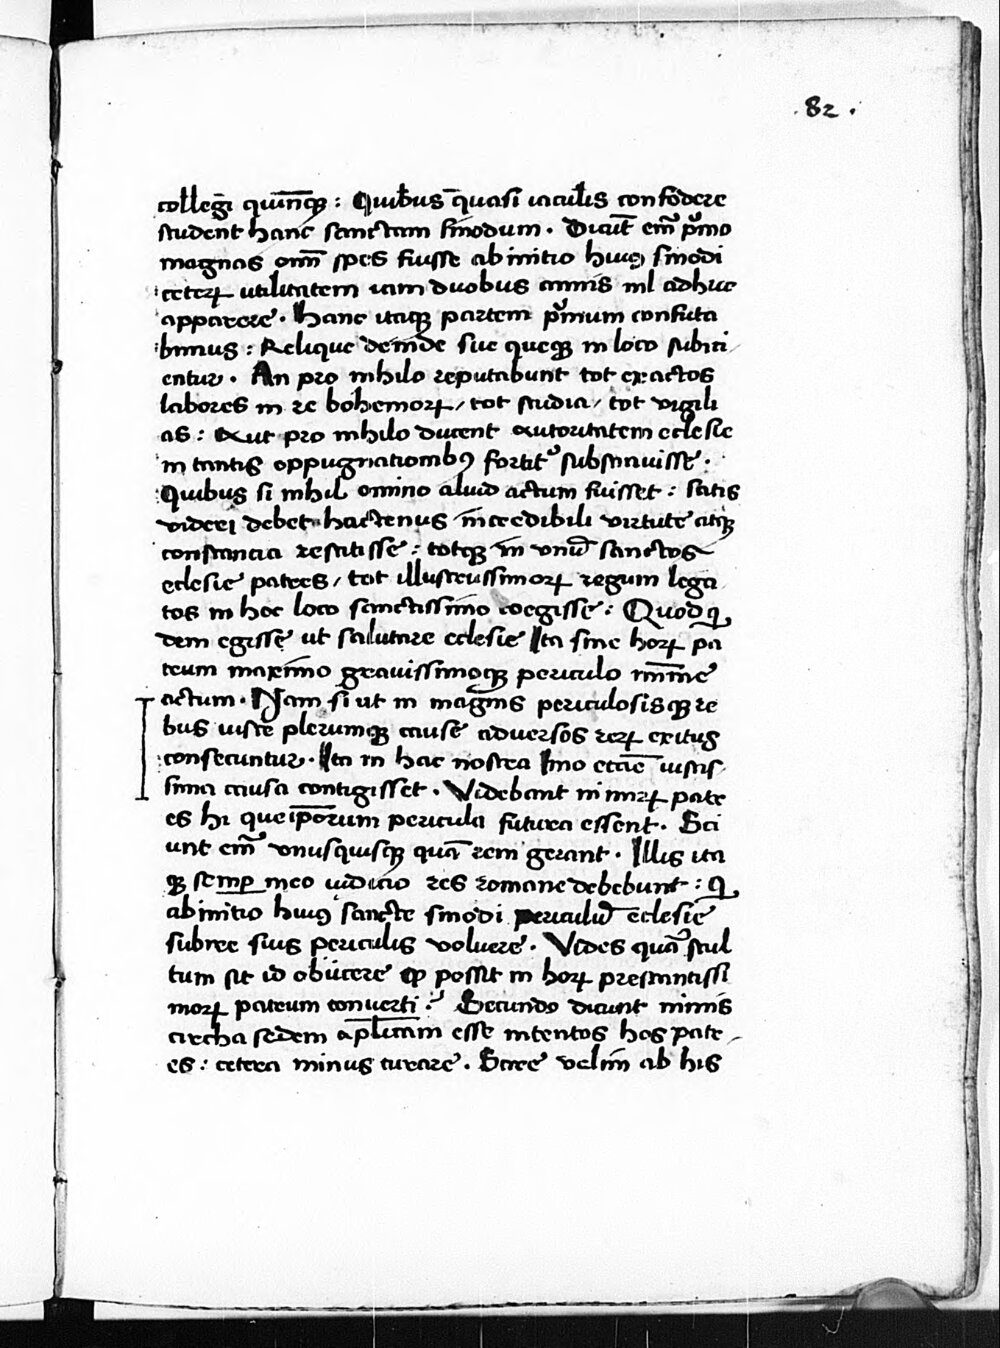 .82.
collegi quinq̃ : Quibus quasi iaculis confodere
student hanc sanctam sinodum . Dicũt em̃ pͥmo
magnas om̃ spes fuisse ab initio huiꝯ sinodi
ceteꝝ utilitatem iam duobus annis nl adhuc
apparere . Hanc itaqꝫ partem pͥmum confuta
bimus : Relique deinde sue queqꝫ in loco subici⸗
entur . An pro nihilo reputabunt tot exactos
labores in re bohemoꝝ / tot studia / tot vigili
as : Aut pro nihilo ducent autoritatem eclesie
in tantis oppugnationibꝯ fortit᷑ substinuisse .
Quibus si nihil omino aliud actum fuisset : satis
videri debet hactenus incredibili virtute atqꝫ
constancia restitisse : totqꝫ in vnũ sanctos
eclesie patres / tot illustrissimoꝝ regum lega
tos in hoc loco sanctissimo coegisse : Quod qͥ
dem egisse ut salutare eclesie Ita sine hoꝝ pa
trum maximo grauissimoqꝫ periculo mĩme
actum . Nam si ut in magnis periculosisqꝫ re
bus iuste plerumqꝫ cause aduersos reꝝ exitus
consecuntur . Ita in hac nostra Imo eciã iustis⸗
sima causa contigisset . Videbant nimiꝝ patr
es hi que ip̃orum pericula futura essent . Sci
unt em̃ vnusquisqꝫ quã rem gerant . Illis ita
qꝫ semꝑ meo iudicio res romane debebunt : qͥ
ab initio huiꝯ sancte sinodi periculũ eclesie
subire suis periculis voluere . Vides quã stul
tum sit id obiicere ꝙ possit in hoꝝ prestantissi
moꝝ patrum conuerti . Secundo dicunt nimis
circha sedem ap̃licam esse intentos hos patr⸗
es : cetera minus curare . Scire velim ab his